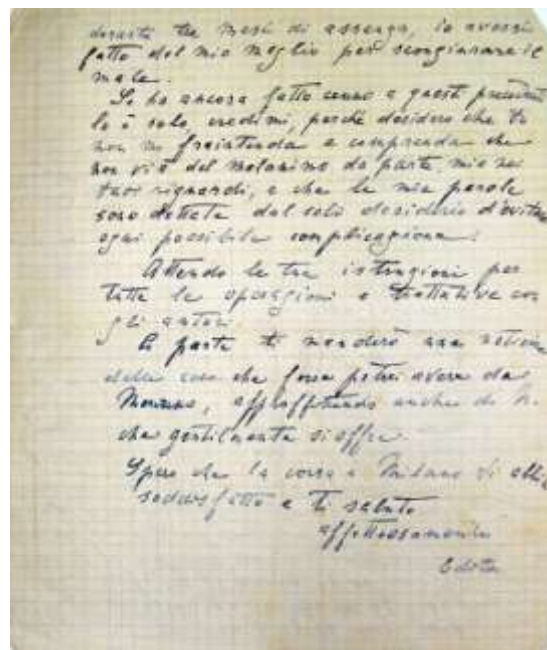 durante tre mesi di assenza, io avessi
fatto del mio meglio per scongiurare il
male.
Se ho ancora fatto cenno a questi
lo è solo, credimi, perché desidero che tu
non mi fraintenda e comprenda che
non vi è del malanimo da parte mia nei
tuoi riguardi, e che le mie parole
sono dettate dal solo desiderio d'evitare
ogni possibile complicazione.
Attendo le tue istruzioni per
tutte le operazioni e trattative con
gli autori.
A parte ti manderò una
delle cose che forse potrei avere da
approfittando anche di
che gentilmente si offre.
Spero che la corsa a Milano ti abbia
soddisfatto e ti saluto
affettuosamente